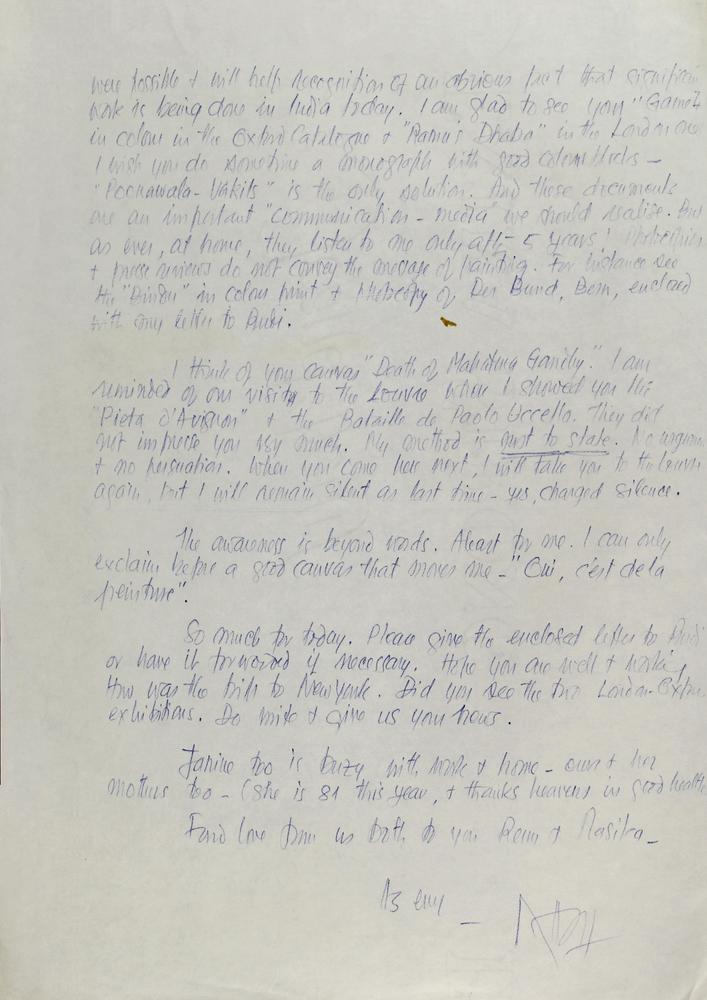 were possible + will help recognition of an obvious fact that significant
work is being done in India today. I am glad to see your "Games
in colour in the Oxford Catalogue + "Ramu's Dhaba" in the London one
I wish you do sometime a monograph with good colour blocks –
"Poonawala - Vakils" is the only solution. And these documents
are an important "communication - media" we should realise. But
as ever, at home, they listen to me only after 5 years! Photocopies
+ press reviews do not convey the message of painting. For instance see
the "Bindu" in colour print + photocopy of Der Bund, Bern, enclosed
with my letter to
I think of your canvas "Death of Mahatma Gandhi." I am
reminded of our visits to the Louvre when I showed you the
"Pieta d'Avignon" + the Bataille de Paolo Uccello. They did
not impress you very much. My method is not to state. No argum
+ no persuation. When you come here next, I will take you to the Louvre
again, but I will remain silent as last time – yes, charged silence.
The awareness is beyond words. Atleast for me. I can only
exclaim before a good canvas that moves me – "Oui, c'est de la
peinture".
So much for today. Please give the enclosed letter to
or have it forwarded if necessary. Hope you are well + working
How was the trip to New York. Did you see the two London-Oxford
exhibitions. Do write + give us your news.
Janine too is buzy with work + home – ours + her
mothers too – (she is 81 this year, + thanks heavens in good health
Fond love from us both to you Renu + Rasika –
As ever –